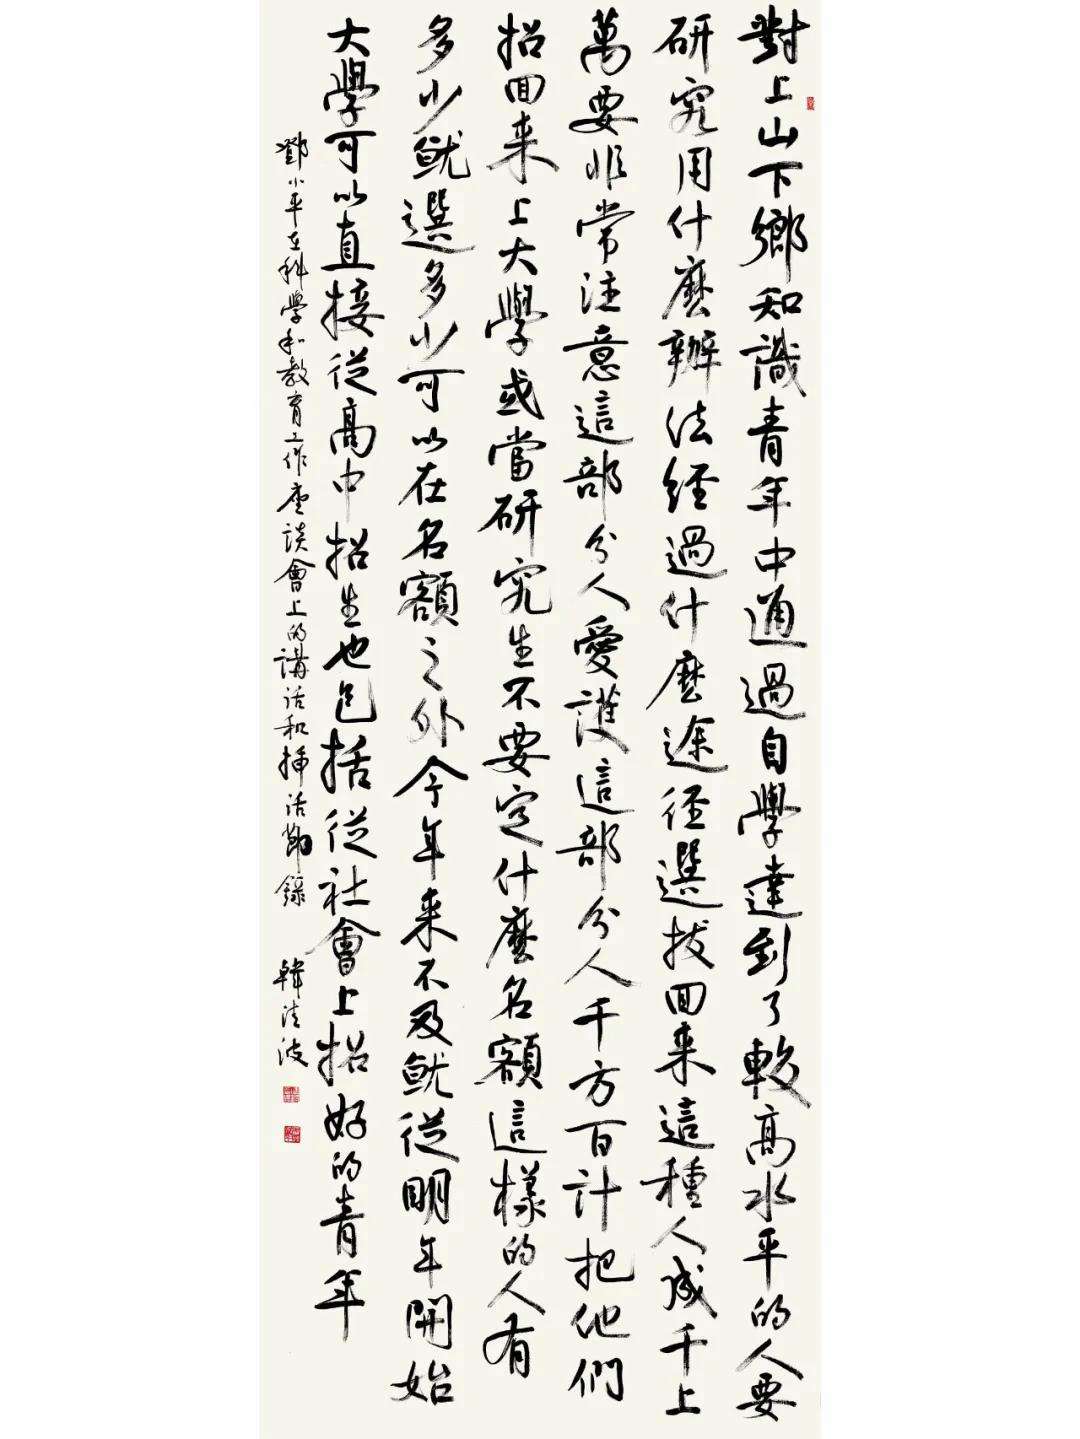 對上山下鄉知識青年中通過自學達到了較高水平的人要
研究用什麼辦法經過什麼途徑選拔回來這種人成千上
萬要非常注意這部分人愛護這部分人千方百計把他們
招回來上大學或當研究生不要定什麼名額這樣的人有
多少就選多少可以在名額之外今年来不及就從明年開始
大學可以直接從高中招生也包括從社會上招好的青年
鄧小平在科學和教育工作座談會上的講話和插話節錄
韓清波